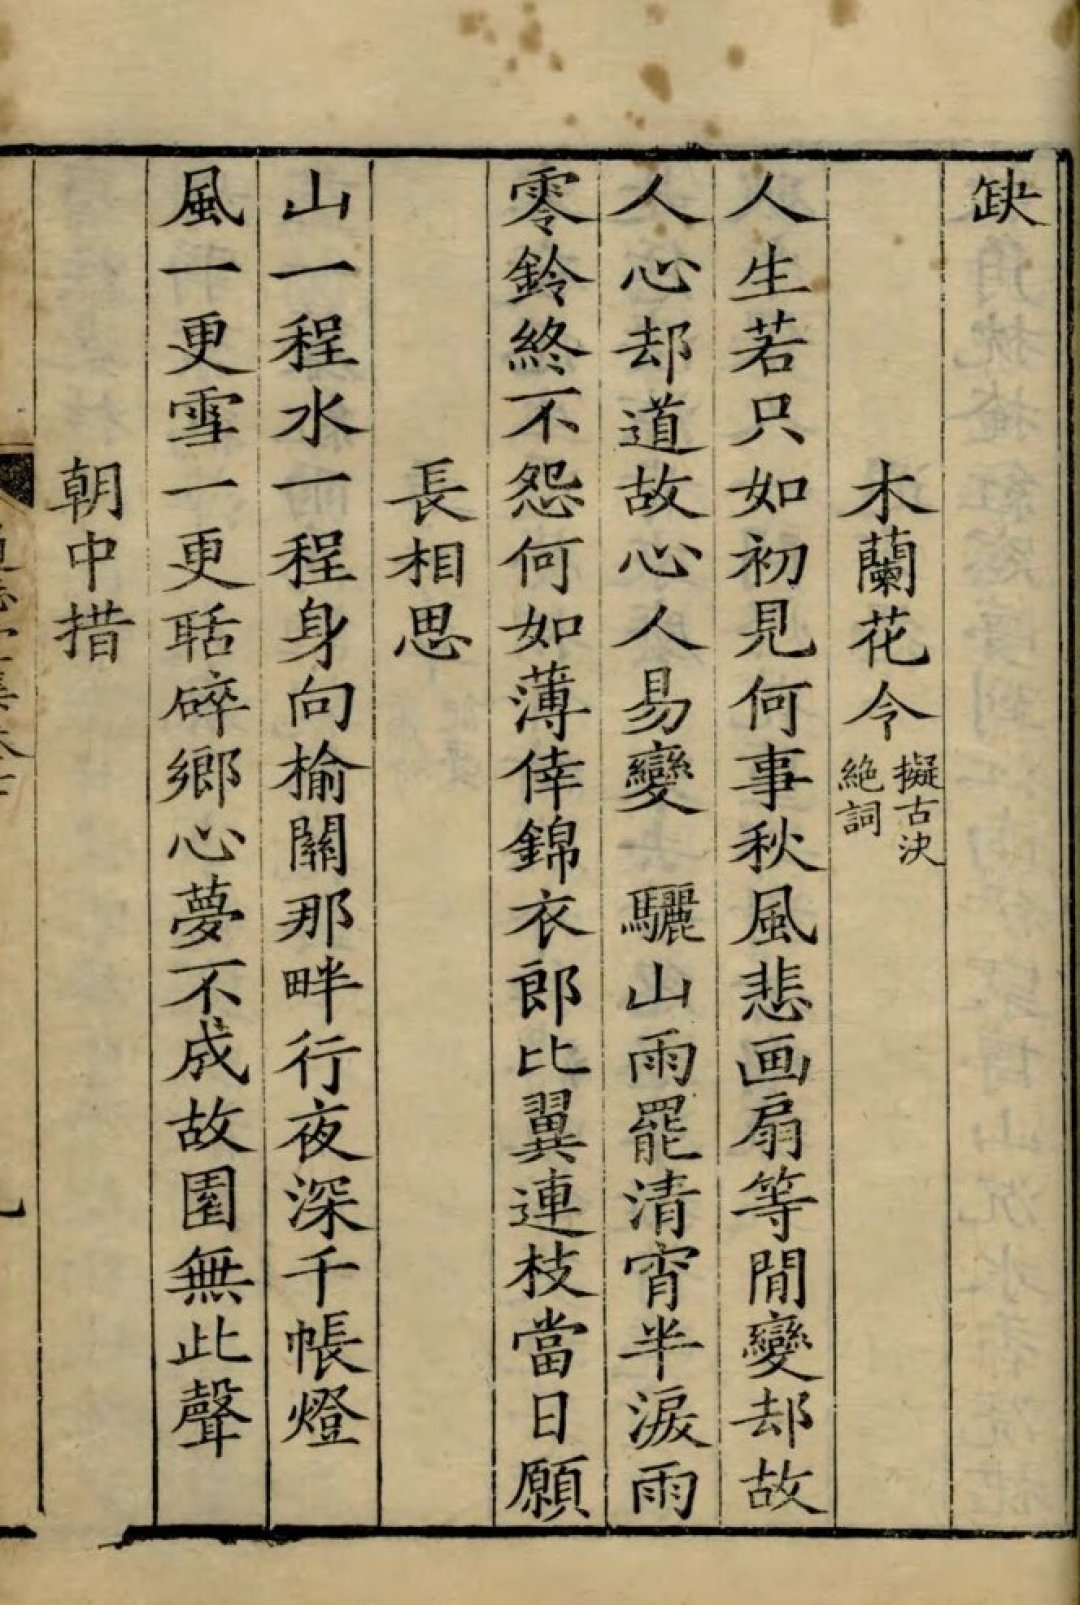 缺
木蘭花令 擬古決絶詞
人生若只如初見何事秋風悲画扇等閒變却故
人心却道故心人易變 驪山雨罷清宵半淚雨
零鈴終不怨何如薄倖錦衣郎比翼連枝當日願
長相思
山一程水一程身向榆關那畔行夜深千帳燈
風一更雪一更聒碎鄉心夢不成故園無此聲
朝中措